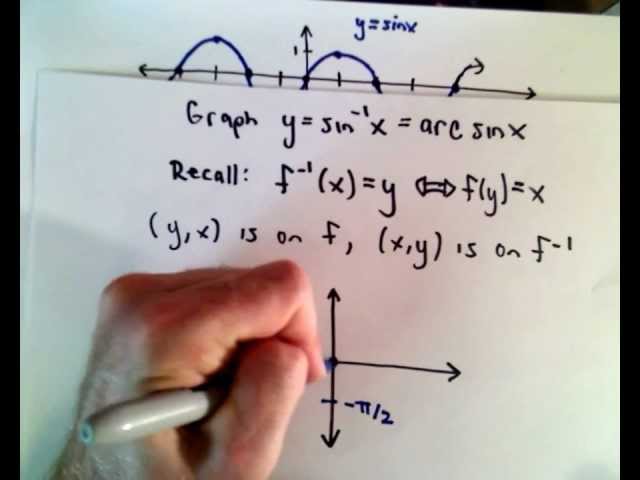 y=sinx
1
Graph y=sin⁻¹x = arc sinx
Recall: f⁻¹(x)=y ⟺ f(y)=x
(y,x) is on f, (x,y) is on f⁻¹
-π/2